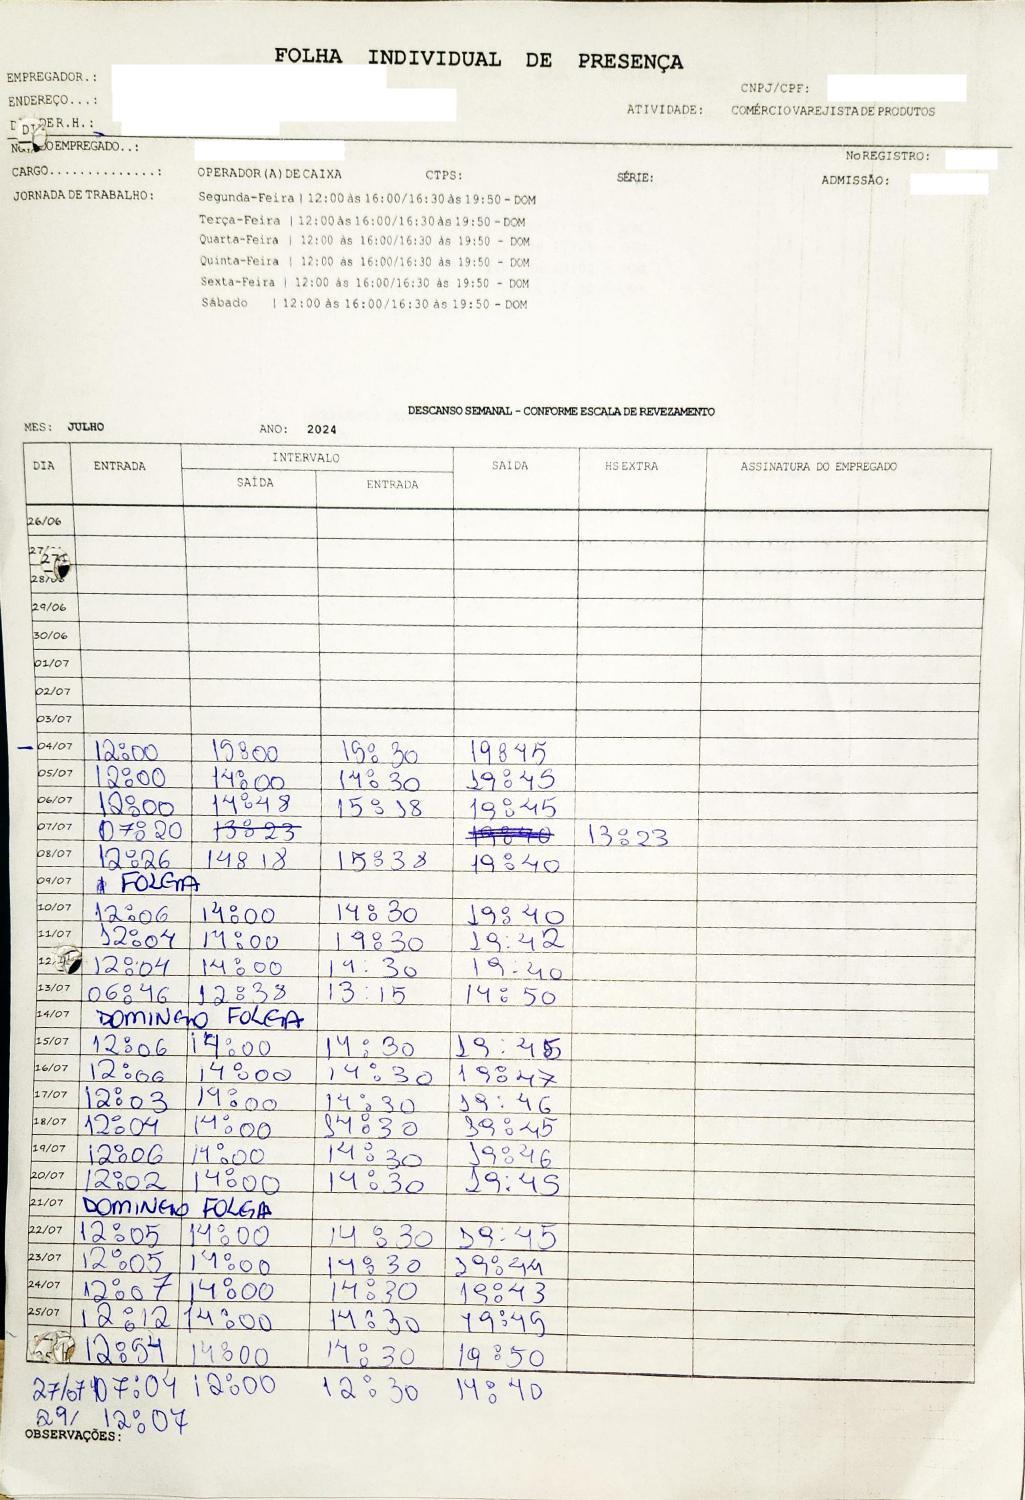 FOLHA INDIVIDUAL DE PRESENÇA
EMPREGADOR.:
CNPJ/CPF:
ENDEREÇO...:
ATIVIDADE: COMÉRCIO VAREJISTA DE PRODUTOS
ER.H.:
EMPREGADO..:
No REGISTRO:
CARGO..............: OPERADOR (A) DE CAIXA CTPS: SÉRIE: ADMISSÃO:
JORNADA DE TRABALHO: Segunda-Feira | 12:00 às 16:00/16:30 às 19:50 - DOM
Terça-Feira | 12:00 às 16:00/16:30 às 19:50 - DOM
Quarta-Feira | 12:00 às 16:00/16:30 às 19:50 - DOM
Quinta-Feira | 12:00 às 16:00/16:30 às 19:50 - DOM
Sexta-Feira | 12:00 às 16:00/16:30 às 19:50 - DOM
Sábado | 12:00 às 16:00/16:30 às 19:50 - DOM
DESCANSO SEMANAL - CONFORME ESCALA DE REVEZAMENTO
MES: JULHO ANO: 2024
DIA ENTRADA INTERVALO SAÍDA HS EXTRA ASSINATURA DO EMPREGADO
SAÍDA ENTRADA
26/06
27
28/
29/06
30/06
01/07
02/07
03/07
04/07 12:00 15:00 15:30 19:45
05/07 12:00 14:00 14:30 19:45
06/07 12:00 14:48 15:18 19:45
07/07 07:20 13:23 19:40 13:23
08/07 12:26 14:18 15:38 19:40
09/07 FOLGA
10/07 12:06 14:00 14:30 19:40
11/07 12:04 14:00 14:30 19:42
12/ 12:04 14:00 14:30 19:40
13/07 06:46 12:38 13:15 14:50
14/07 DOMINGO FOLGA
15/07 12:06 14:00 14:30 19:45
16/07 12:06 14:00 14:30 19:47
17/07 12:03 14:00 14:30 19:46
18/07 12:04 14:00 14:30 19:45
19/07 12:06 14:00 14:30 19:46
20/07 12:02 14:00 14:30 19:45
21/07 DOMINGO FOLGA
22/07 12:05 14:00 14:30 19:45
23/07 12:05 14:00 14:30 19:44
24/07 12:07 14:00 14:30 19:43
25/07 12:12 14:00 14:30 19:45
12:54 14:00 14:30 19:50
27/07 07:04 12:00 12:30 14:40
29/ 12:07
OBSERVAÇÕES: